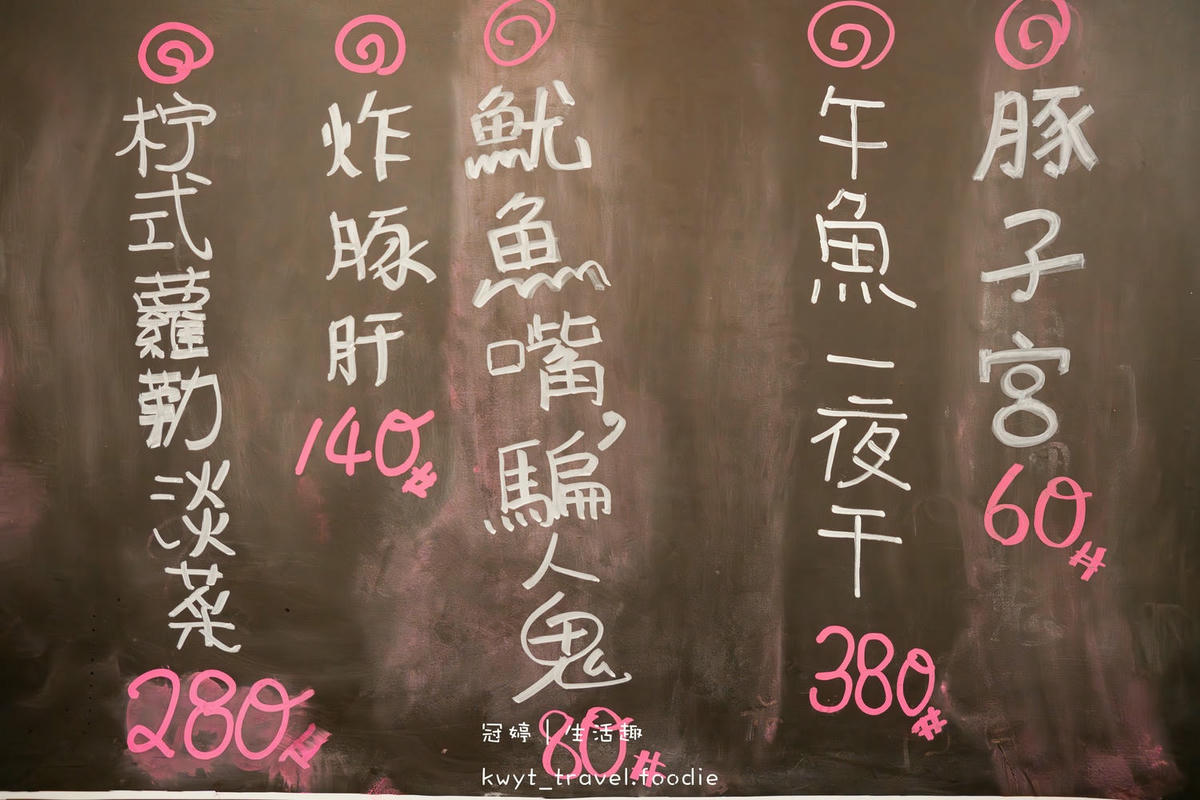 豚子宮
60#
午魚一夜干
380#
魷魚嘴,騙人鬼
80#
炸豚肝
140#
柠式蘿勒淡菜
280
冠婷 | 生活趣
kwyt_travel.foodie